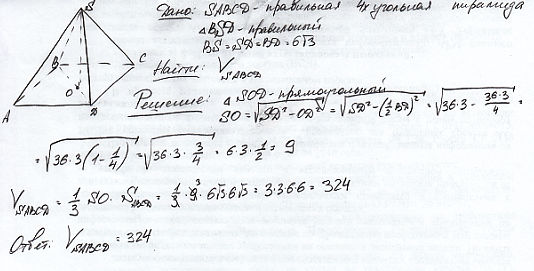 S
B
C
O
A
D
Дано: SABCD - правильная 4х угольная пирамида
△BSD - правильный
BS = SD = BD = 6√3
Найти: V_SABCD
Решение: △SOD - прямоугольный
SO = √(SD² - OD²) = √(SD² - (1/2 BD)²) = √(36·3 - 36·3/4) =
= √(36·3(1 - 1/4)) = √(36·3·3/4) = 6·3·1/2 = 9
V_SABCD = 1/3 SO · S_ABCD = 1/3 · 9³ · 6√3 6√3 = 3·3·6·6 = 324
Ответ: V_SABCD = 324